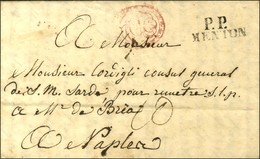 P.P.
MENTON
A Monsieur
Monsieur Corvigli consus general
de S. M. Sarde pour remetre s.l.p.
a Mr de Bria
A Naples